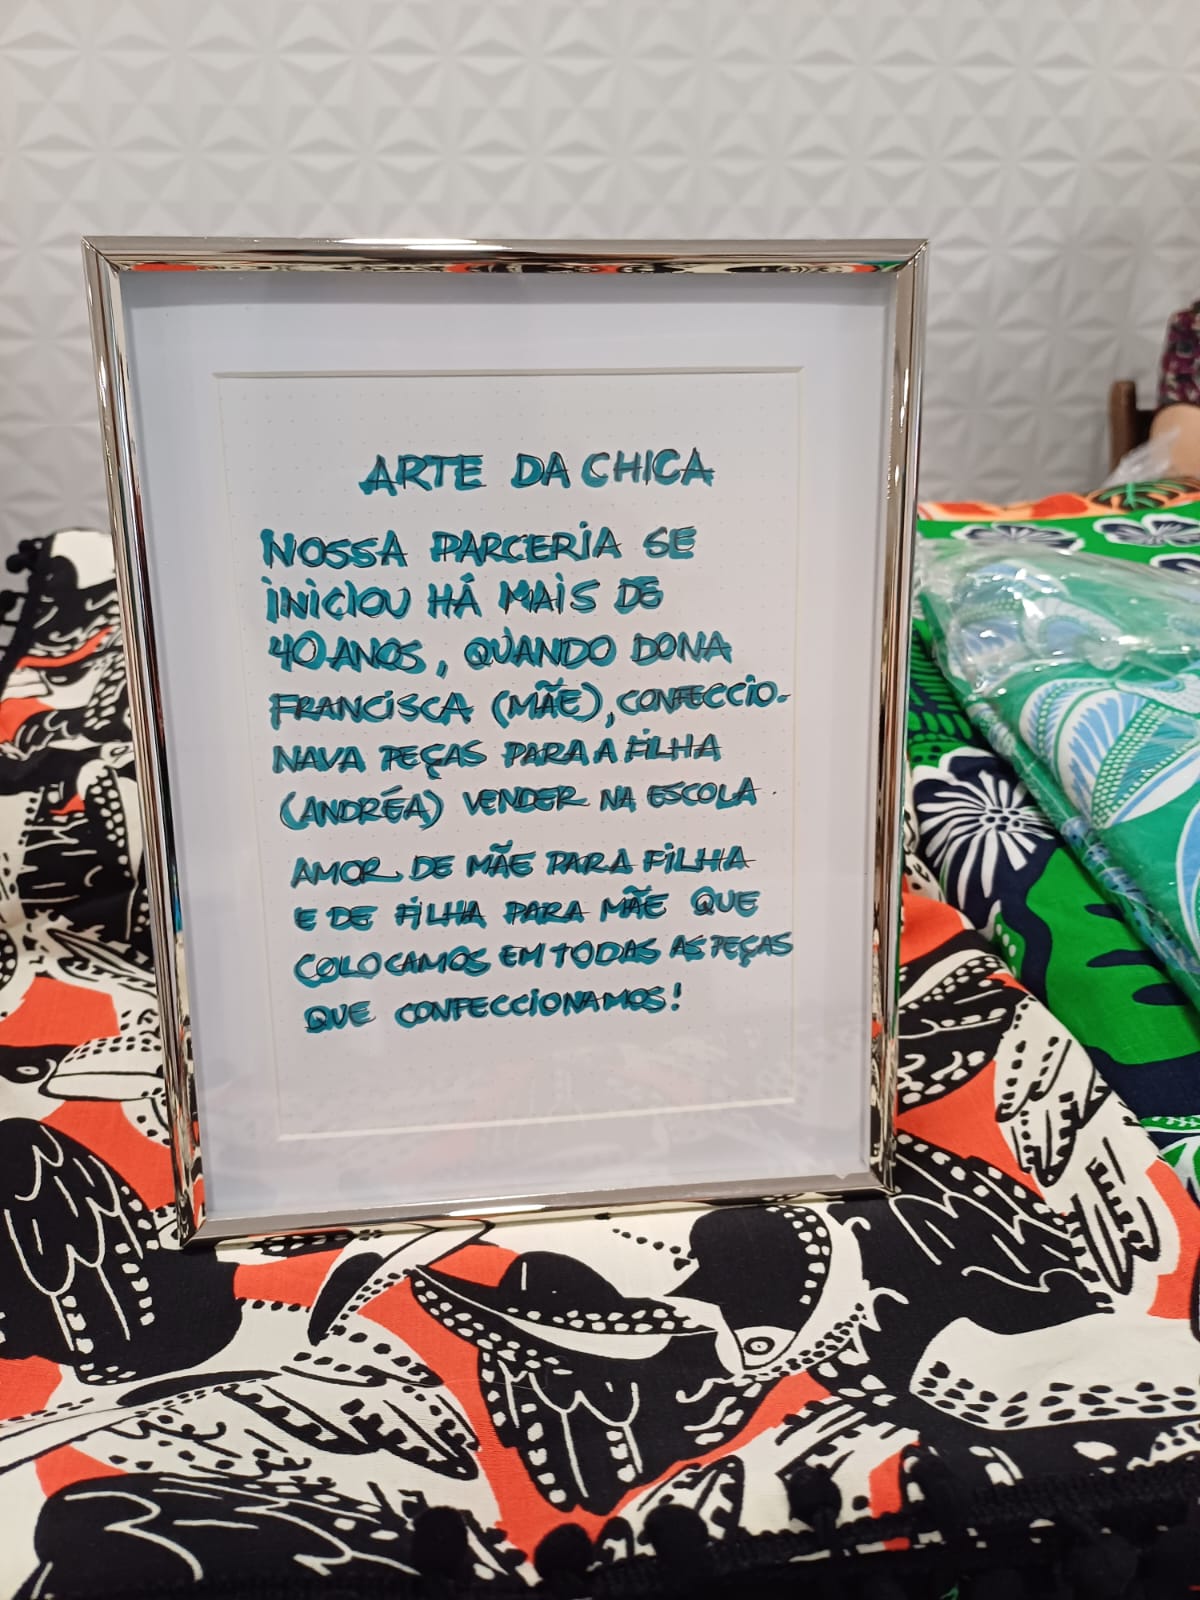 ARTE DA CHICA
NOSSA PARCERIA SE
INICIOU HÁ MAIS DE
40 ANOS, QUANDO DONA
FRANCISCA (MÃE), CONFECCIO-
NAVA PEÇAS PARA A FILHA
(ANDRÉA) VENDER NA ESCOLA.
AMOR DE MÃE PARA FILHA
E DE FILHA PARA MÃE QUE
COLOCAMOS EM TODAS AS PEÇAS
QUE CONFECCIONAMOS!